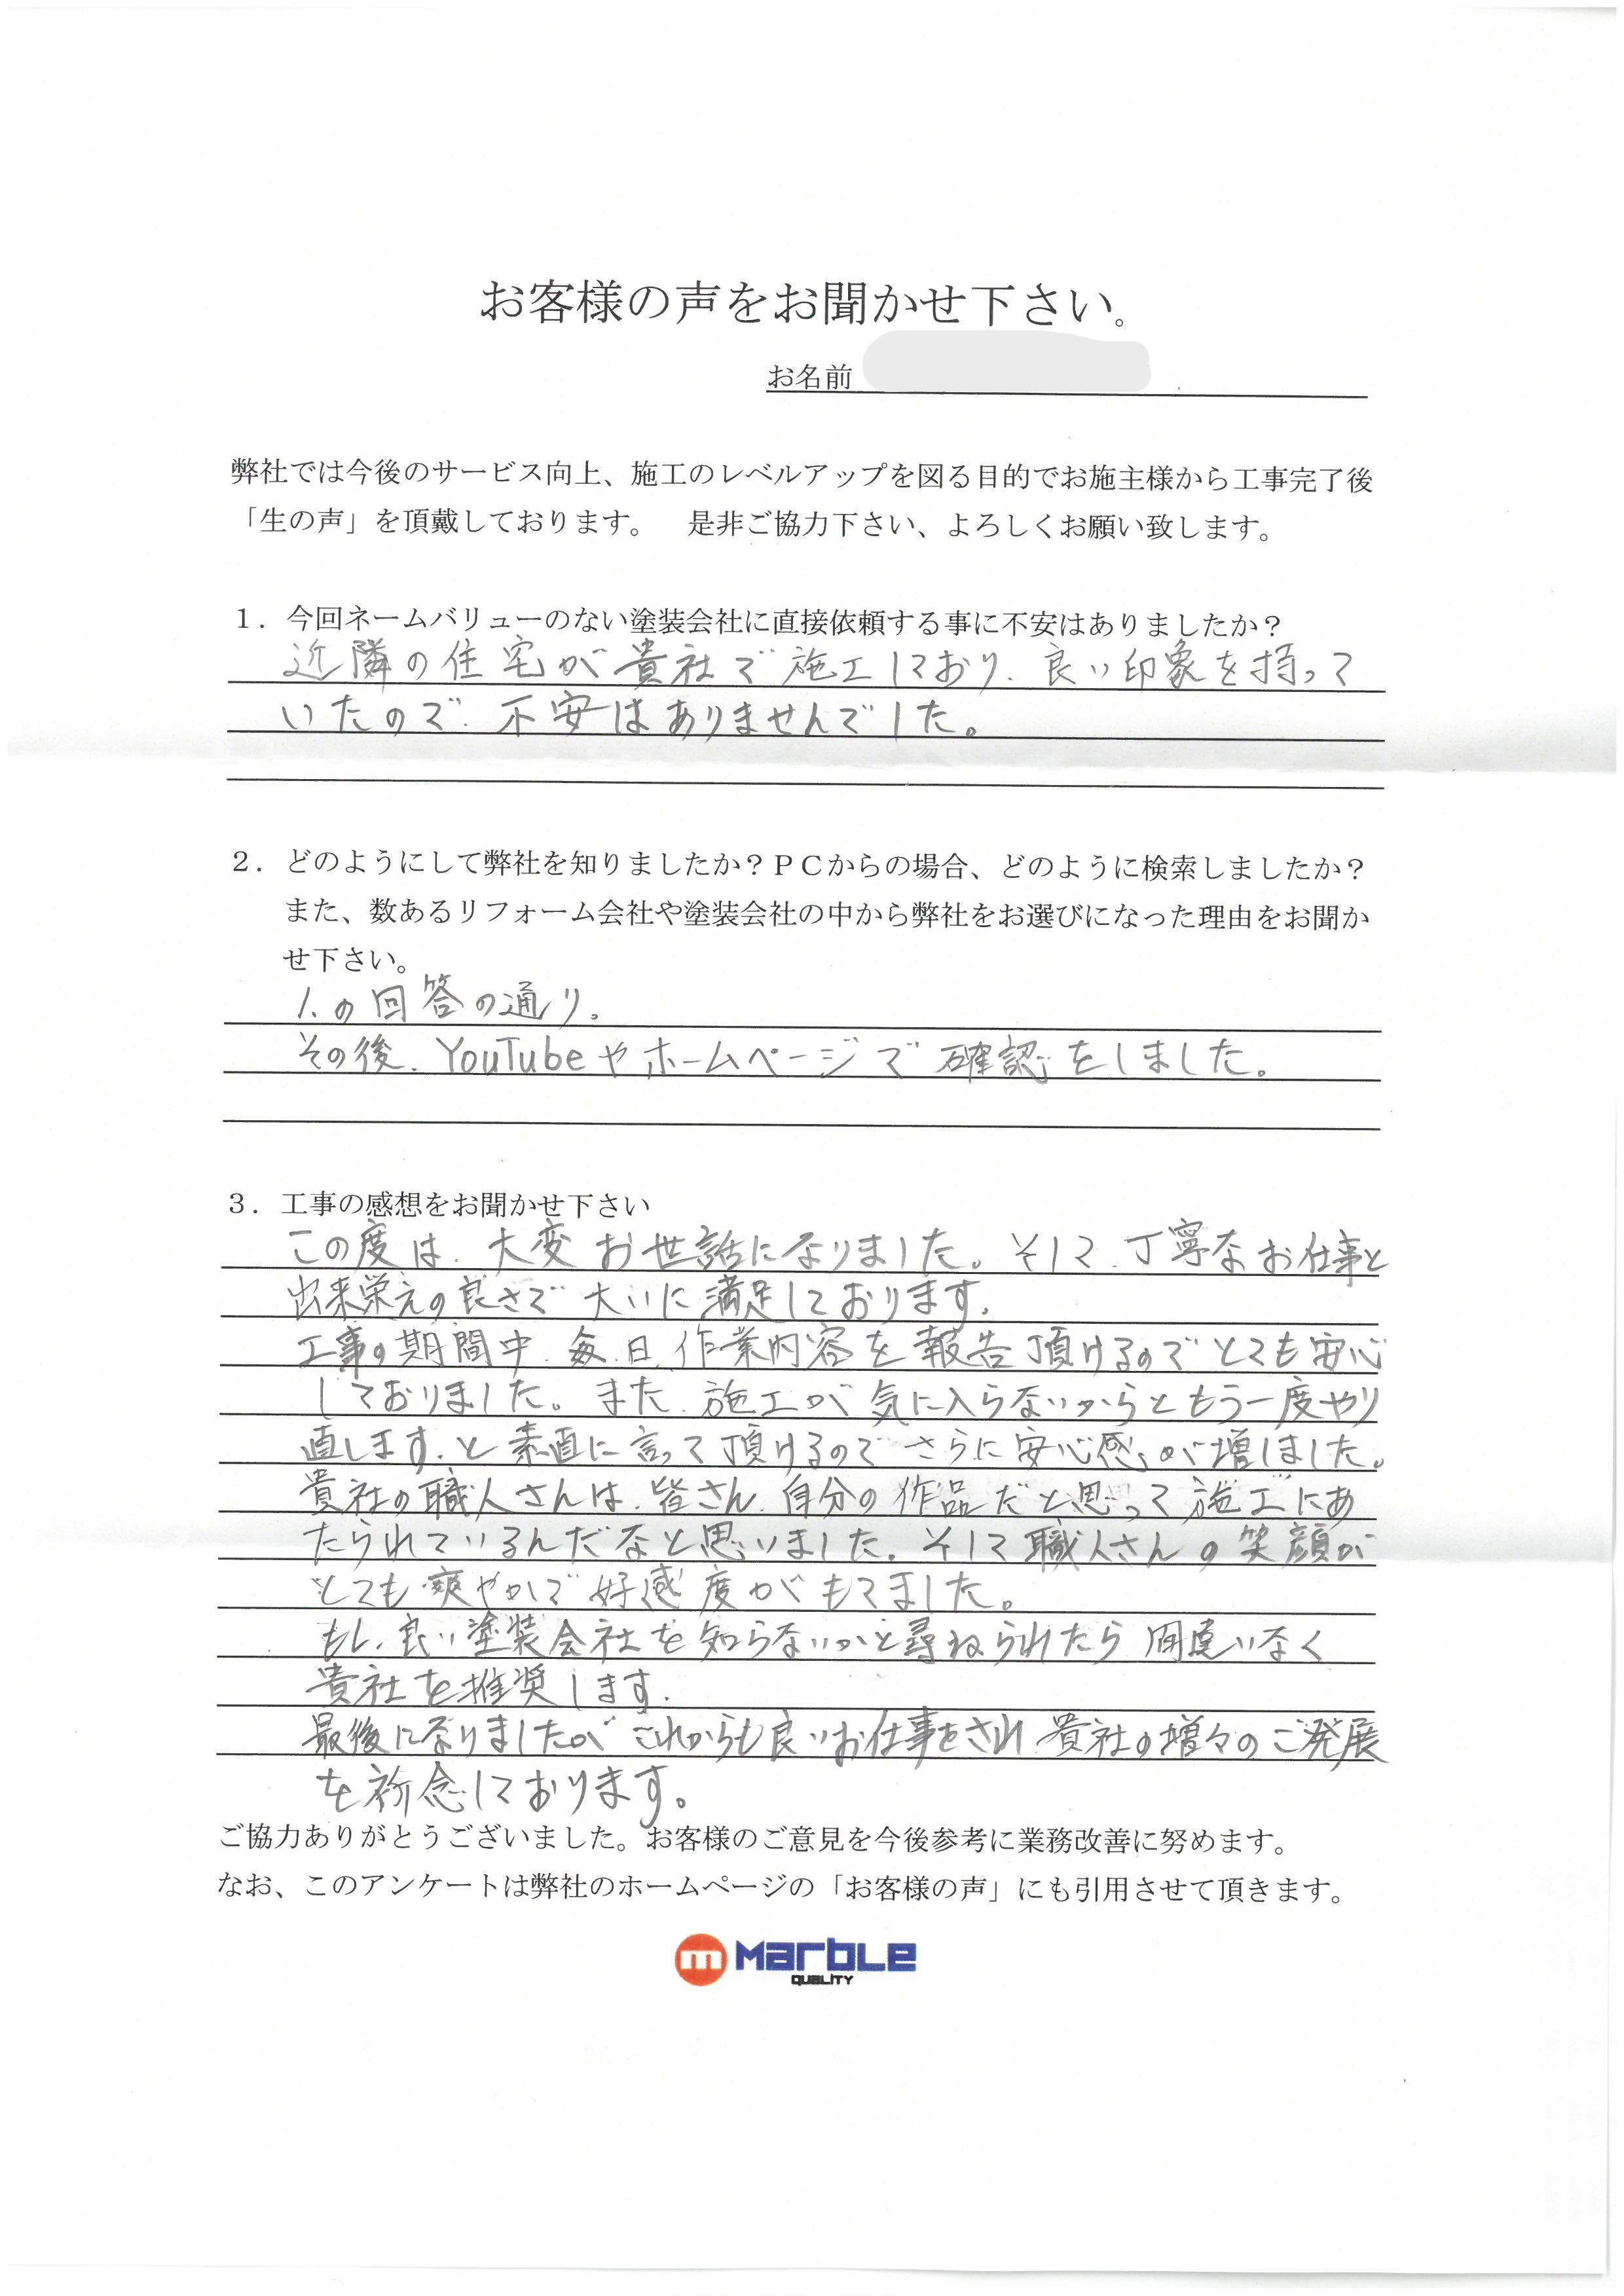 お客様の声をお聞かせ下さい。
お名前
弊社では今後のサービス向上、施工のレベルアップを図る目的でお施主様から工事完了後
「生の声」を頂戴しております。　是非ご協力下さい、よろしくお願い致します。
１．今回ネームバリューのない塗装会社に直接依頼する事に不安はありましたか？
近隣の住宅が貴社で施工しており、良い印象を持って
いたので、不安はありませんでした。
２．どのようにして弊社を知りましたか？ＰＣからの場合、どのように検索しましたか？
また、数あるリフォーム会社や塗装会社の中から弊社をお選びになった理由をお聞か
せ下さい。
1.の回答の通り。
その後、YouTubeやホームページで確認をしました。
３．工事の感想をお聞かせ下さい
この度は、大変お世話になりました。そして、丁寧なお仕事と
出来栄えの良さで大いに満足しております。
工事の期間中、毎日、作業内容を報告頂けるのでとても安心
しておりました。また、施工が気に入らないからともう一度やり
直します、と素直に言って頂けるのでさらに安心感が増しました。
貴社の職人さんは、皆さん、自分の作品だと思って施工にあ
たられているんだなと思いました。そして職人さんの笑顔が
とても爽やかで好感度がもてました。
もし、良い塗装会社を知らないかと尋ねられたら間違いなく
貴社を推奨します。
最後になりましたがこれからも良いお仕事をされ、貴社の増々のご発展
を祈念しております。
ご協力ありがとうございました。お客様のご意見を今後参考に業務改善に努めます。
なお、このアンケートは弊社のホームページの「お客様の声」にも引用させて頂きます。
m MarbLe
QUALITY